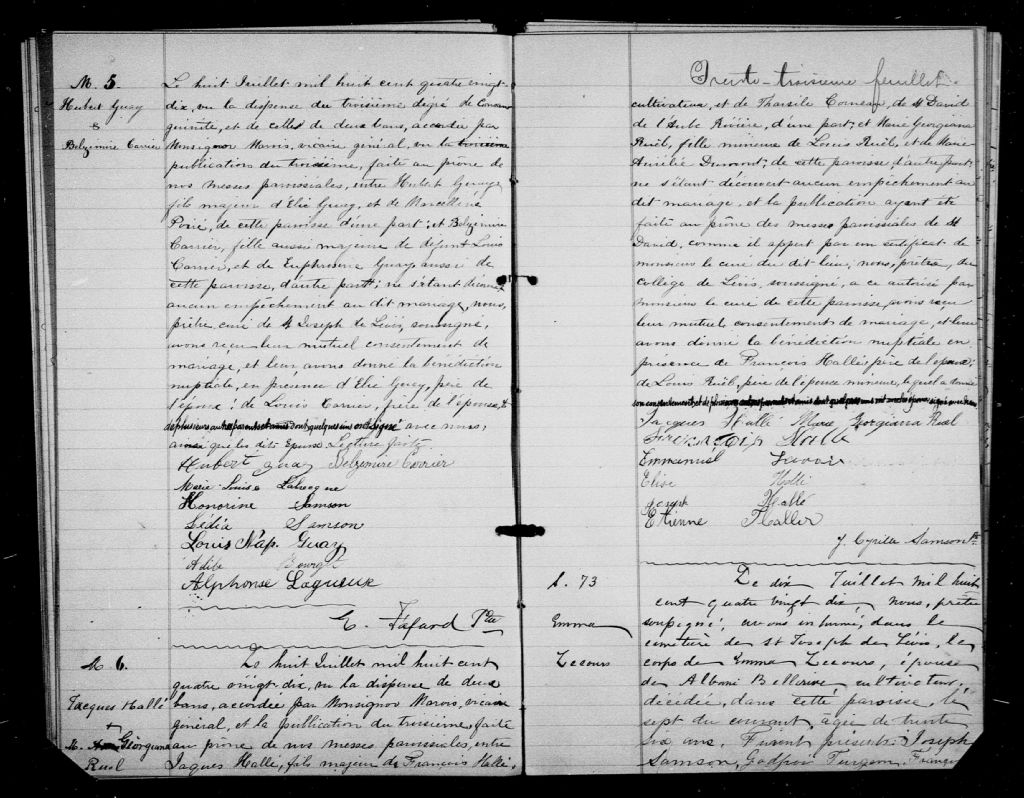 M. 5
Hubert Guay
&
Belzemire Carrier
Le huit Juillet mil huit cent quatre vingt-
dix, vu la dispense du troisième degré de Consan-
guinité, et de celles de deux bans, accordée par
Monsignor Marois, vicaire général, vu la
publication du troisième, faite au prône de
nos messes paroissiales, entre Hubert Guay,
fils majeur d'Elie Guay, et de Marcelline
Poiré, de cette paroisse d'une part; et Belzemire
Carrier, fille aussi majeure de defunt Louis
Carrier, et de Euphrosine Guay aussi de
cette paroisse, d'autre part; ne s'étant découvert
aucun empêchement au dit mariage, nous,
prêtre, curé de St Joseph de Lévis, soussigné,
avons reçu leur mutuel consentement de
mariage, et leur avons donné la bénédiction
nuptiale, en presence d'Elie Guay, père de
l'époux; de Louis Carrier, frère de l'épouse, &
de plusieurs autres parents et amis dont quelques uns ont signé avec nous,
ainsi que les dits Epoux. Lecture faite.
Hubert Guay Belzemire Carrier
Marie Louise Labrecque
Honorine Samson
Lédia Samson
Louis Nap. Guay
Adèle
Alphonse Lagueux
E. Fafard Ptre
M 6.
Jacques Hallé
+
M. Géorgiana
Ruel
Le huit Juillet mil huit cent
quatre vingt-dix, vu la dispense de deux
bans, accordée par Monsignor Marois, vicaire
général, et la publication du troisième, faite
au prône de nos messes paroissiales, entre
Jaques Hallé, fils majeur de François Hallé,
Trente-troisième feuillet.
cultivateur, et de Tharsile Comeau, de St David
de l'Aube Rivière, d'une part; et Marie Georgiana
Ruël, fille mineure de Louis Ruël, et de Marie
Aurélie Dumont, de cette paroisse d'autre part;
ne s'étant découvert aucun empêchement au
dit mariage, et la publication ayant été
faite au prône des messes paroissiales de St
David, comme il appert par un certificat de
monsieur le curé du dit lieu; nous, prêtre, du
collège de Lévis, soussigné, a ce autorisé par
monsieur le curé de cette paroisse, avons reçu
leur mutuel consentement de mariage, et leur
avons donné la bénédiction nuptiale en
présence de François Hallé, père de l'époux;
de Louis Ruël, père de l'épouse mineure, lequel a donné
son consentement, et de
Jacques Hallé Marie Georgiana Ruel
Hallé
Emmanuel
Elise Hallé
Joseph Hallé
Etienne Haller
J. Cyrille Samson Ptre
S. 73
Emma
Lecours
Le dix Juillet mil huit
cent quatre vingt dix, nous, prêtre
soussigné, avons inhumé, dans le
cimetière de St Joseph de Lévis, le
corps de Emma Lecours, épouse
de Albani Bellerive cultivateur,
décédée, dans cette paroisse, le
sept du courant, agée de trente
six ans. Furent présents: Joseph
Samson, Godfroi Turgeon, François